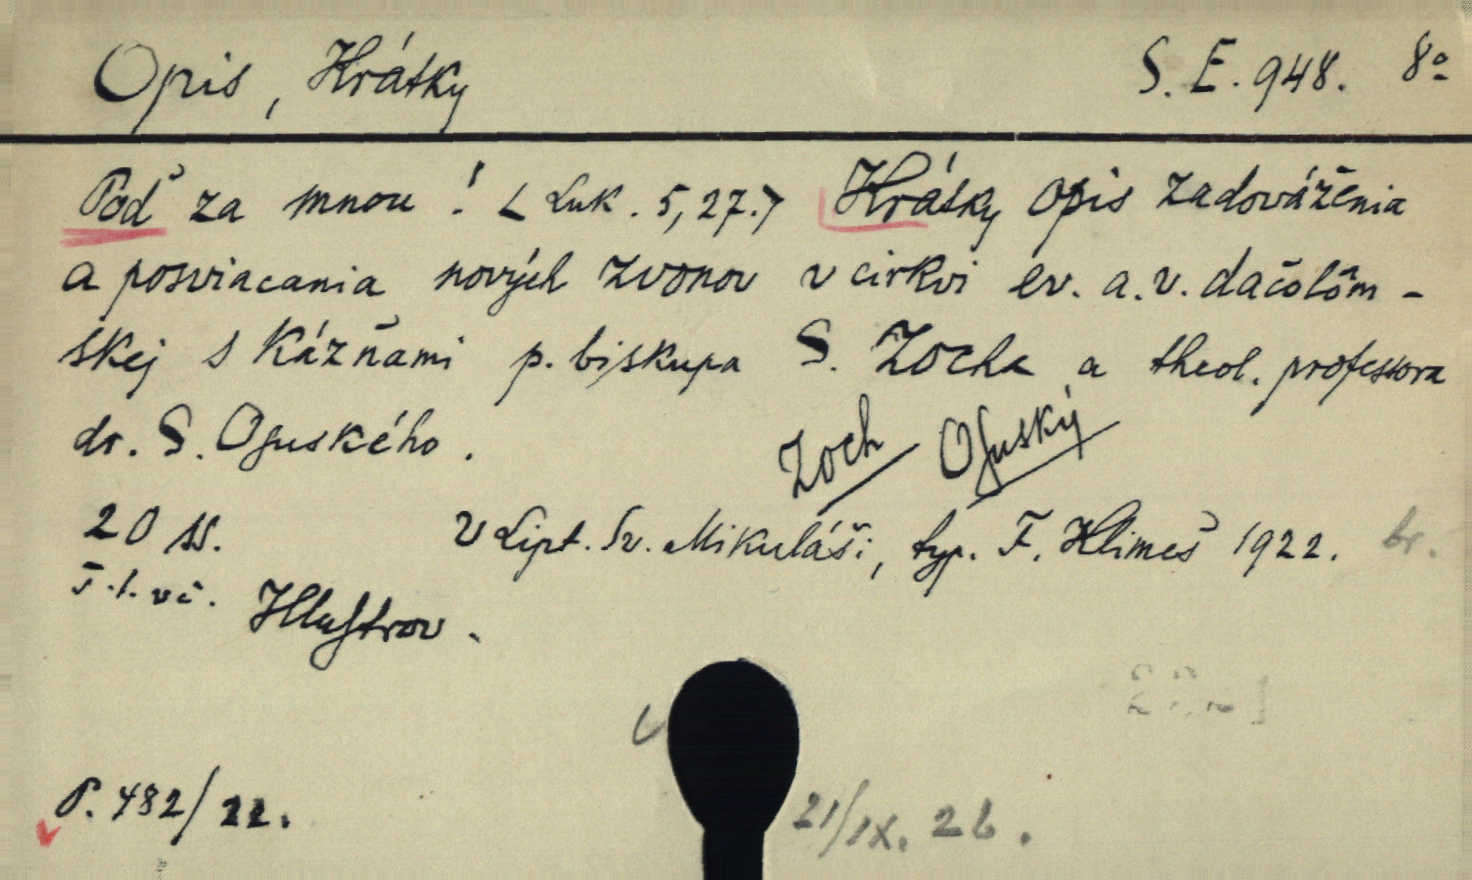 Opis, Krátky S. E. 948. 8°
Poď za mnou! <Luk. 5, 27.> Krátky opis zadováženia
a posviacania nových zvonov v cirkvi ev. a. v. dačolôm-
skej s kázňami p. biskupa S. Zocha a theol. professora
dr. S. Osuského.
Zoch Osuský
20 ss. V Lipt. Sv. Mikuláši, typ. F. Klimeš 1922. br.
Illustrov.
P. 482/22.
21/IX. 26.